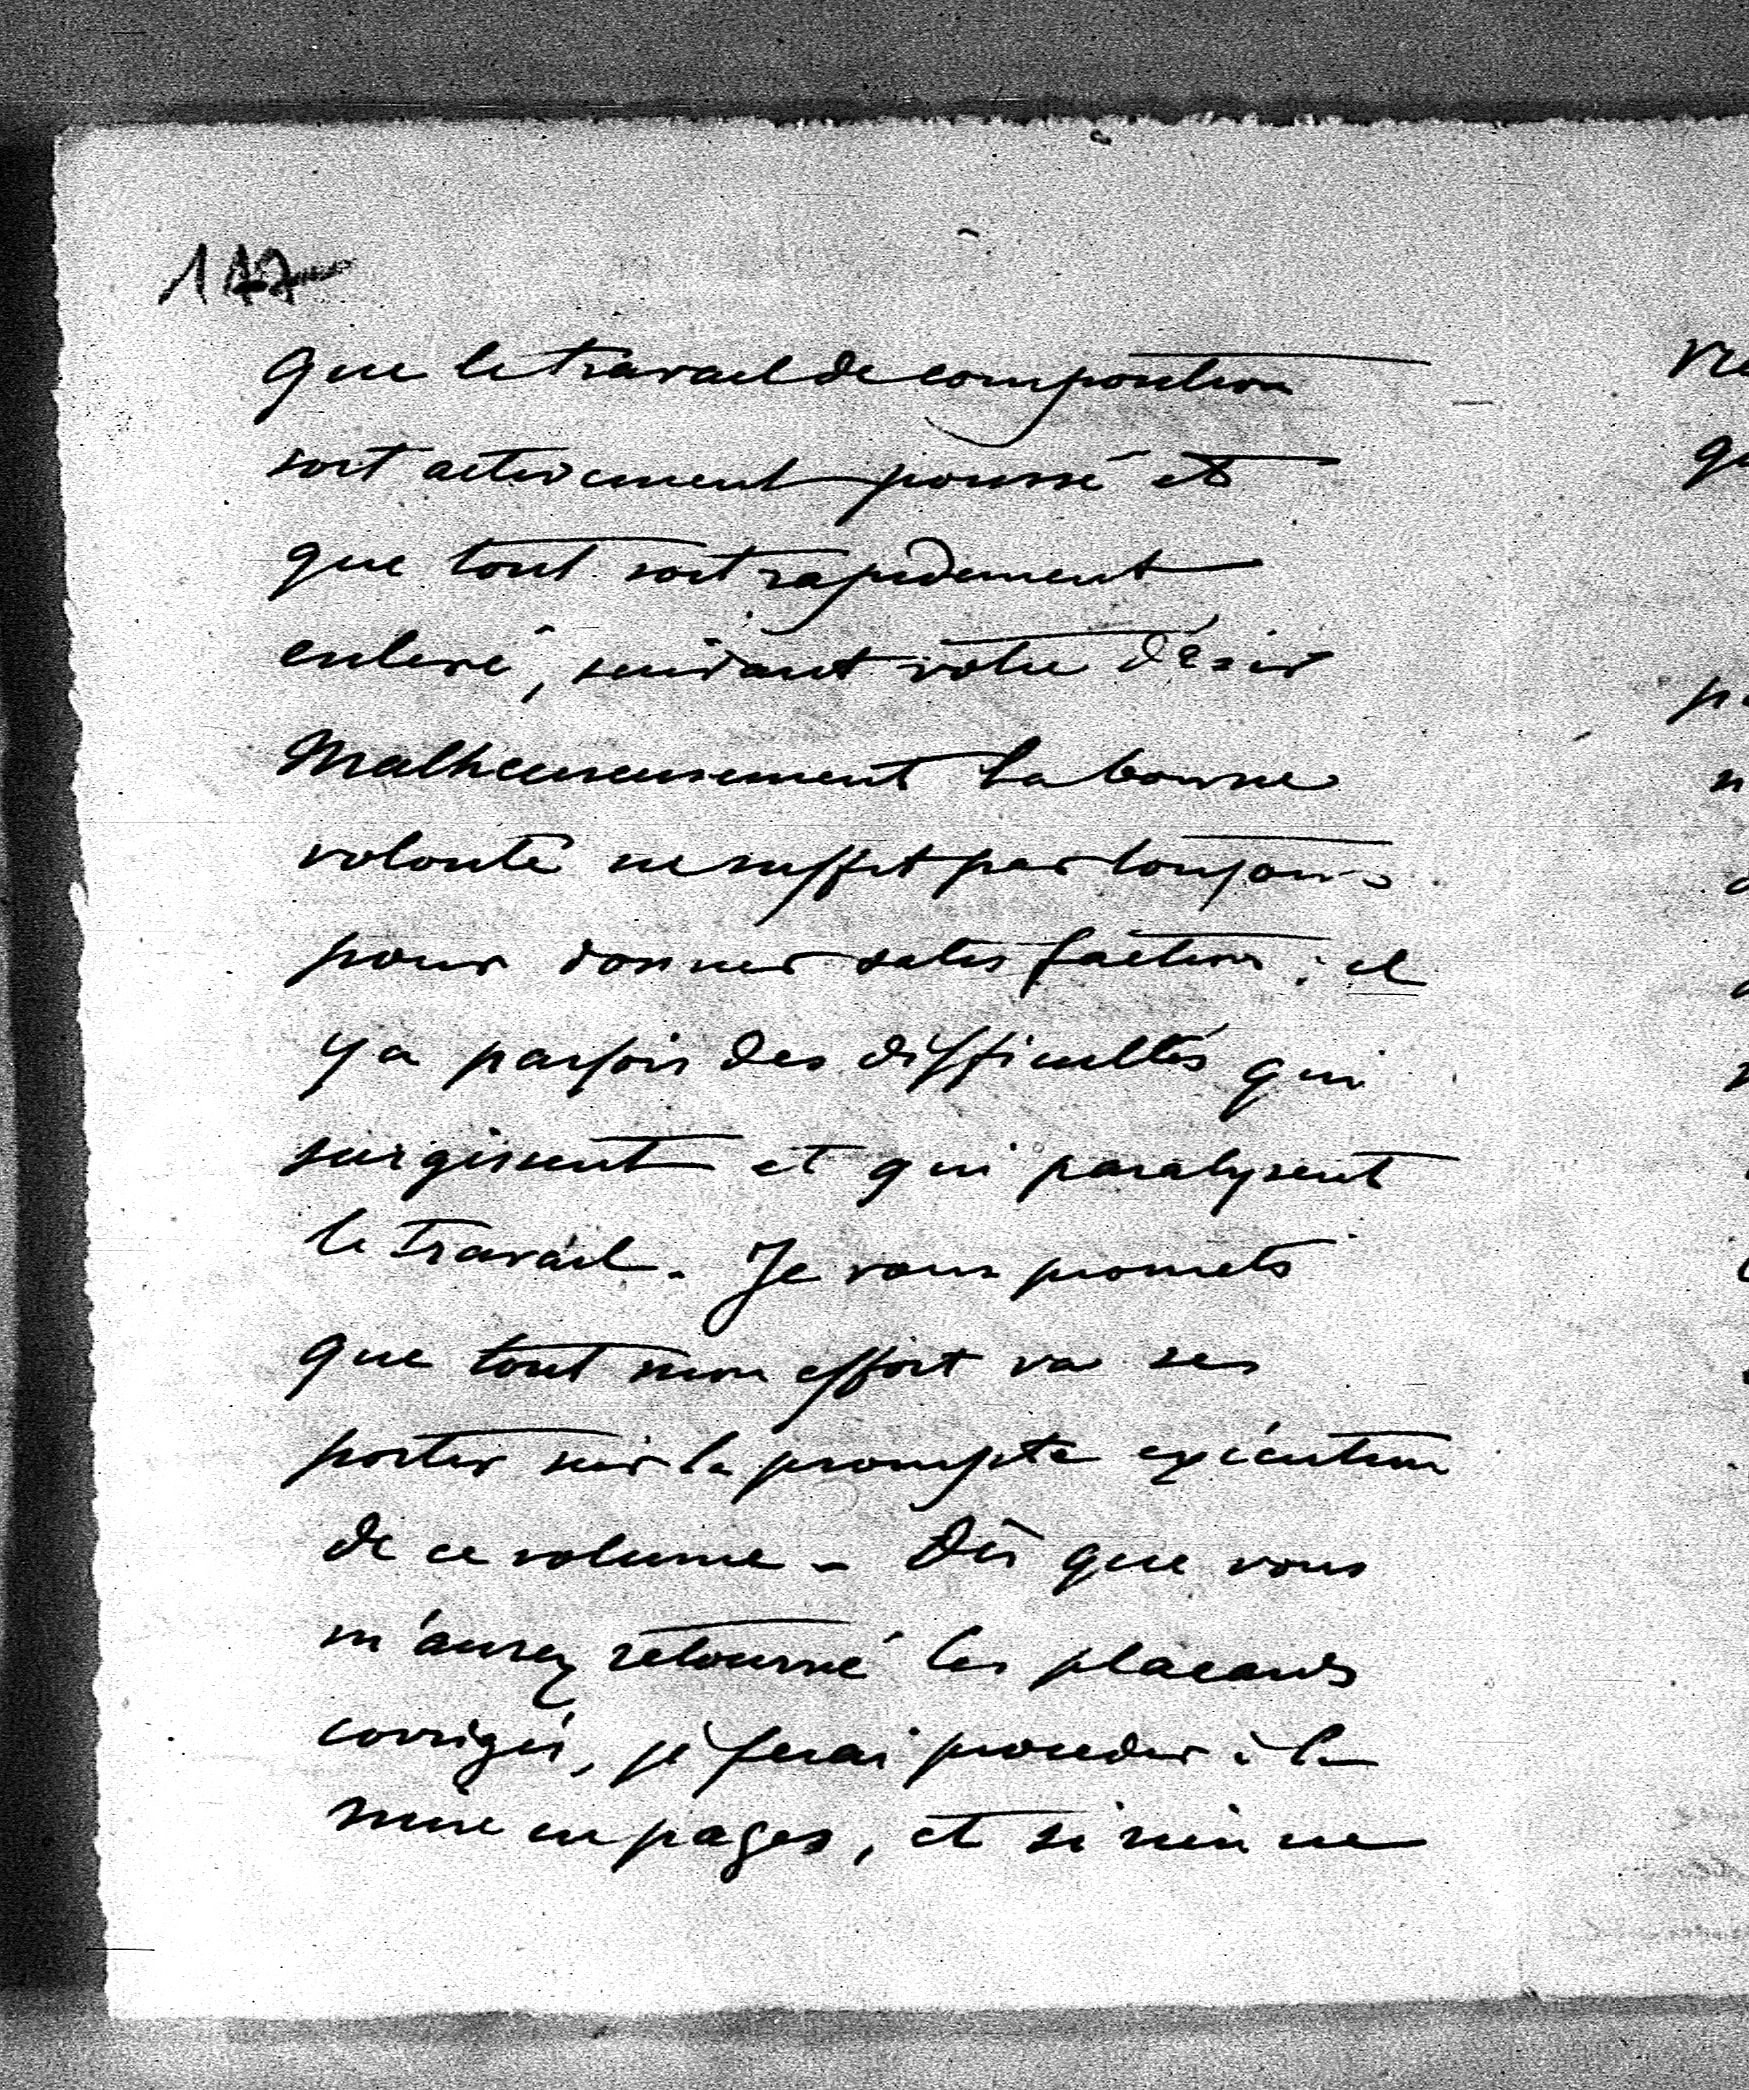 117
que le travail de composition
soit activement poussé et
que tout soit rapidement
enlevé, suivant votre désir
Malheureusement la bonne
volonté ne suffit pas toujours
pour donner satisfaction ; il
y a parfois des difficultés qui
surgissent et qui paralysent
le travail. Je vous promets
que tout mon effort va se
porter sur la prompte exécution
de ce volume - Dès que vous
m'aurez retourné les placards
corrigés, je ferai procéder à la
mise en pages, et si rien ne